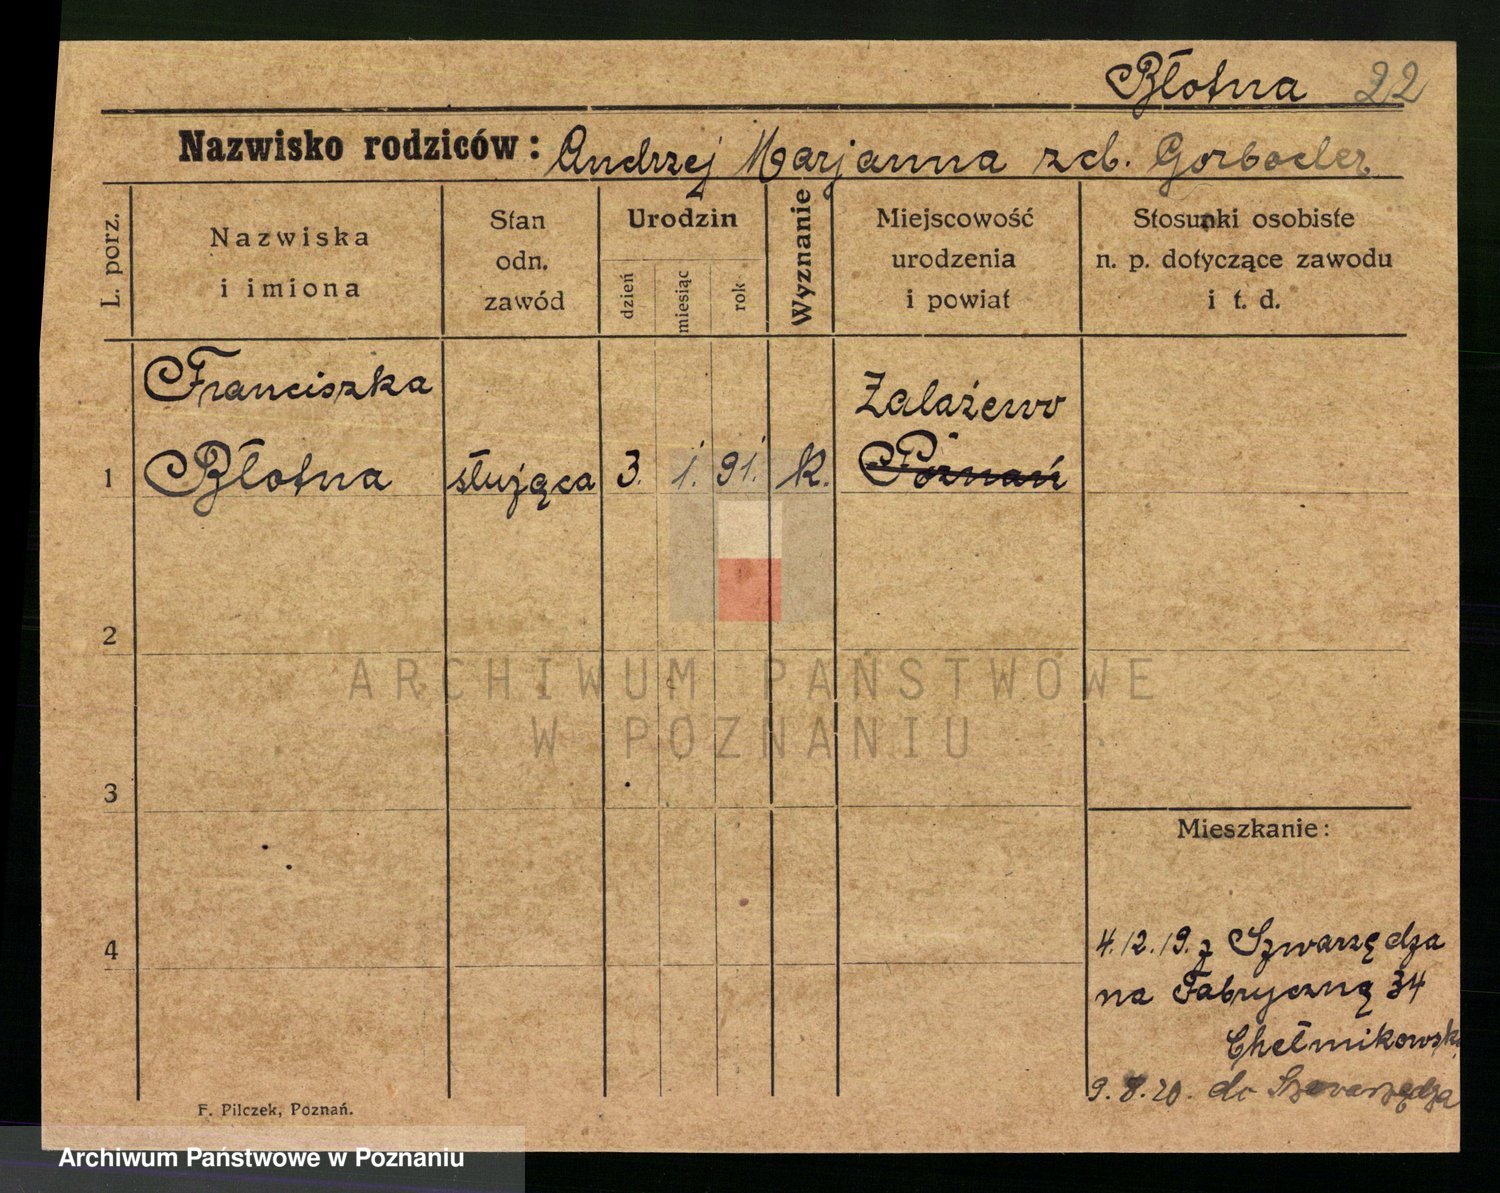 Błotna 22
Nazwisko rodziców: Andrzej Marjanna zd. Gorbocler
L. porz.
Nazwiska
i imiona
Stan
odn.
zawód
Urodzin
dzień
miesiąc
rok
Wyznanie
Miejscowość
urodzenia
i powiat
Stosunki osobiste
n. p. dotyczące zawodu
i t. d.
Franciszka
Zalażewo
1 Błotna służąca 3. 1. 91. K. Poznań
2
3
4
ARCHIWUM PAŃSTWOWE
W POZNANIU
Mieszkanie:
4.12.19. z Szwarzędza
na Fabryczną 34
Chełmikowsk
9.8.20. do Szwarzędza
F. Pilczek, Poznań.
Archiwum Państwowe w Poznaniu